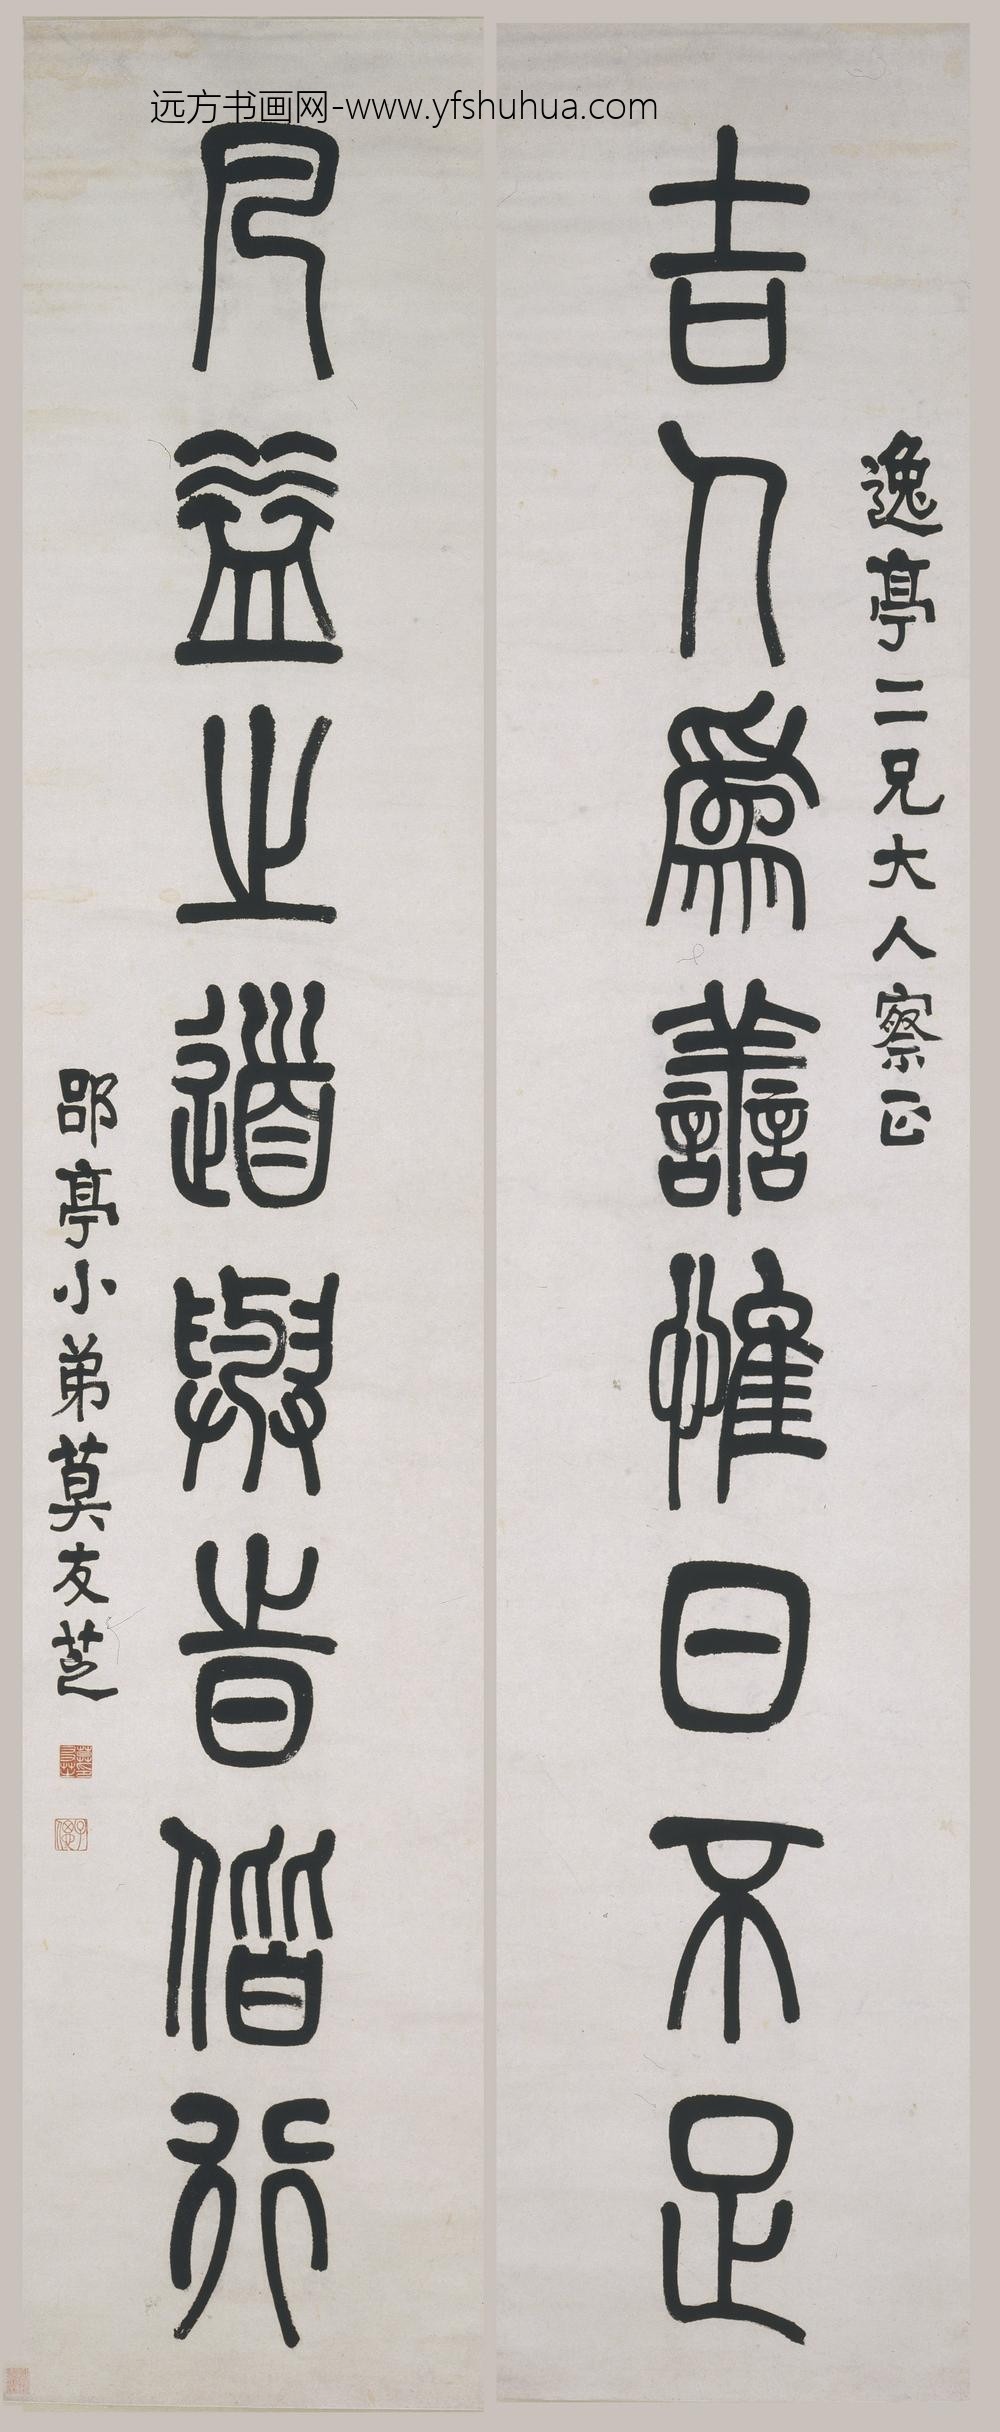 远方书画网-www.yfshuhua.com
逸亭二兄大人察正
吉人為善惟日不足
凡益之道與時偕行
邵亭小弟莫友芝